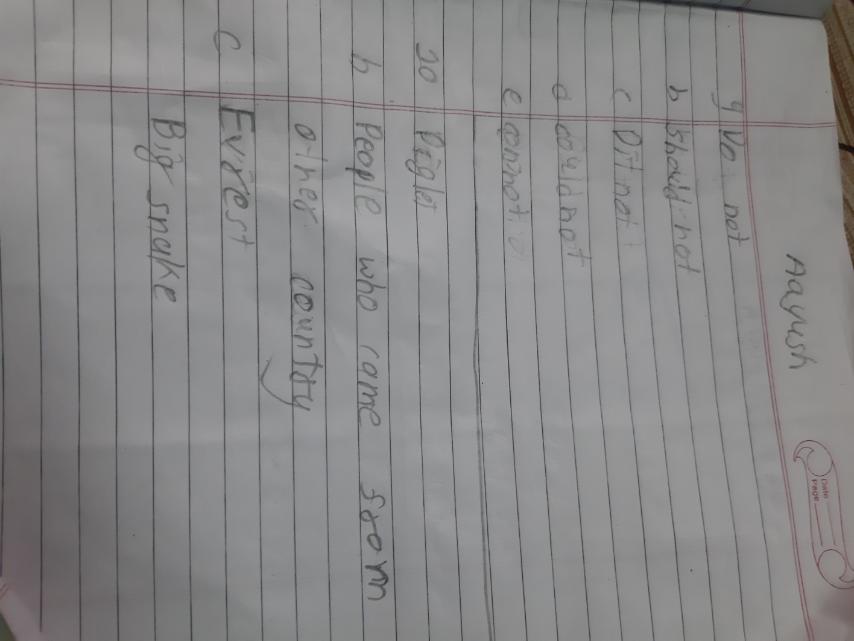 Aayush
Date
Page
g Do not
b should not
c Dit not
d could not
e cannot
20 Piglet
b. People who came srom
other country
c Evirest
Big snake